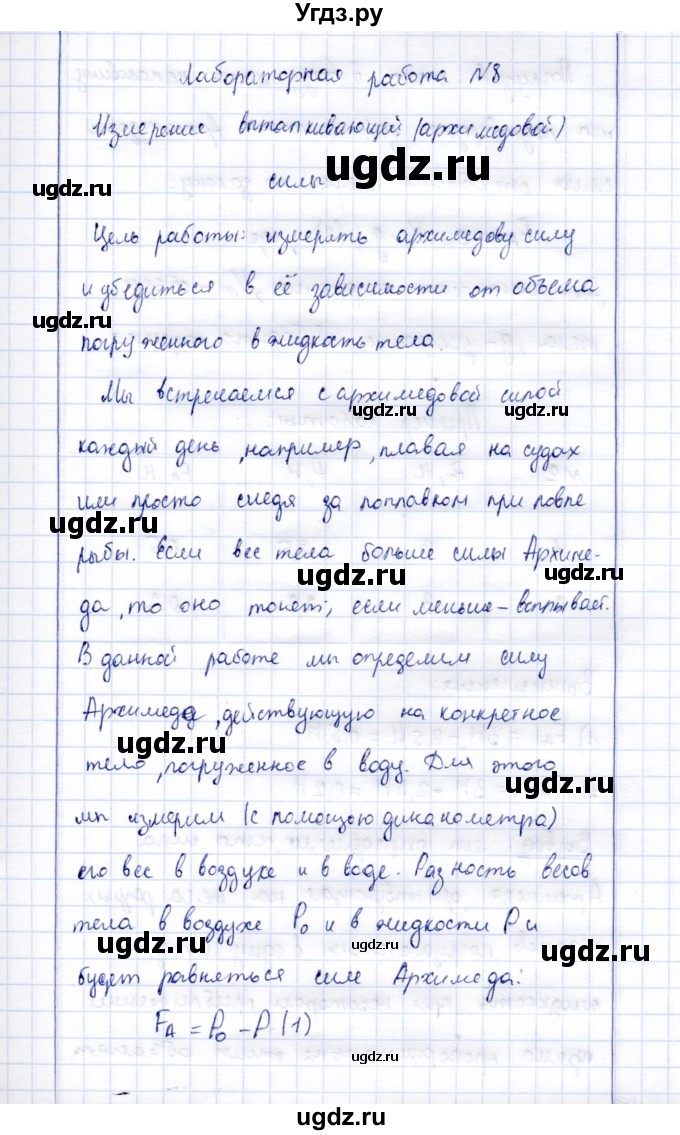 Угдз.ру
Лабораторная работа N8
Измерение выталкивающей (архимедовой)
силы
Цель работы: измерять архимедову силу
и убедиться в её зависимости от объема
погруженного в жидкость тела.
Мы встречаемся с архимедовой силой
каждый день, например, плавая на судах
или просто следя за поплавком при ловле
рыбы. Если вес тела больше силы Архиме-
да, то оно тонет, если меньше – всплывает.
В данной работе мы определим силу
Архимеда, действующую на конкретное
тело, погруженное в воду. Для этого
мы измерим (с помощью динамометра)
его вес в воздухе и в воде. Разность весов
тела в воздухе P₀ и в жидкости P и
будет равняться силе Архимеда:
F_A = P₀ – P (1)
ugdz.ru